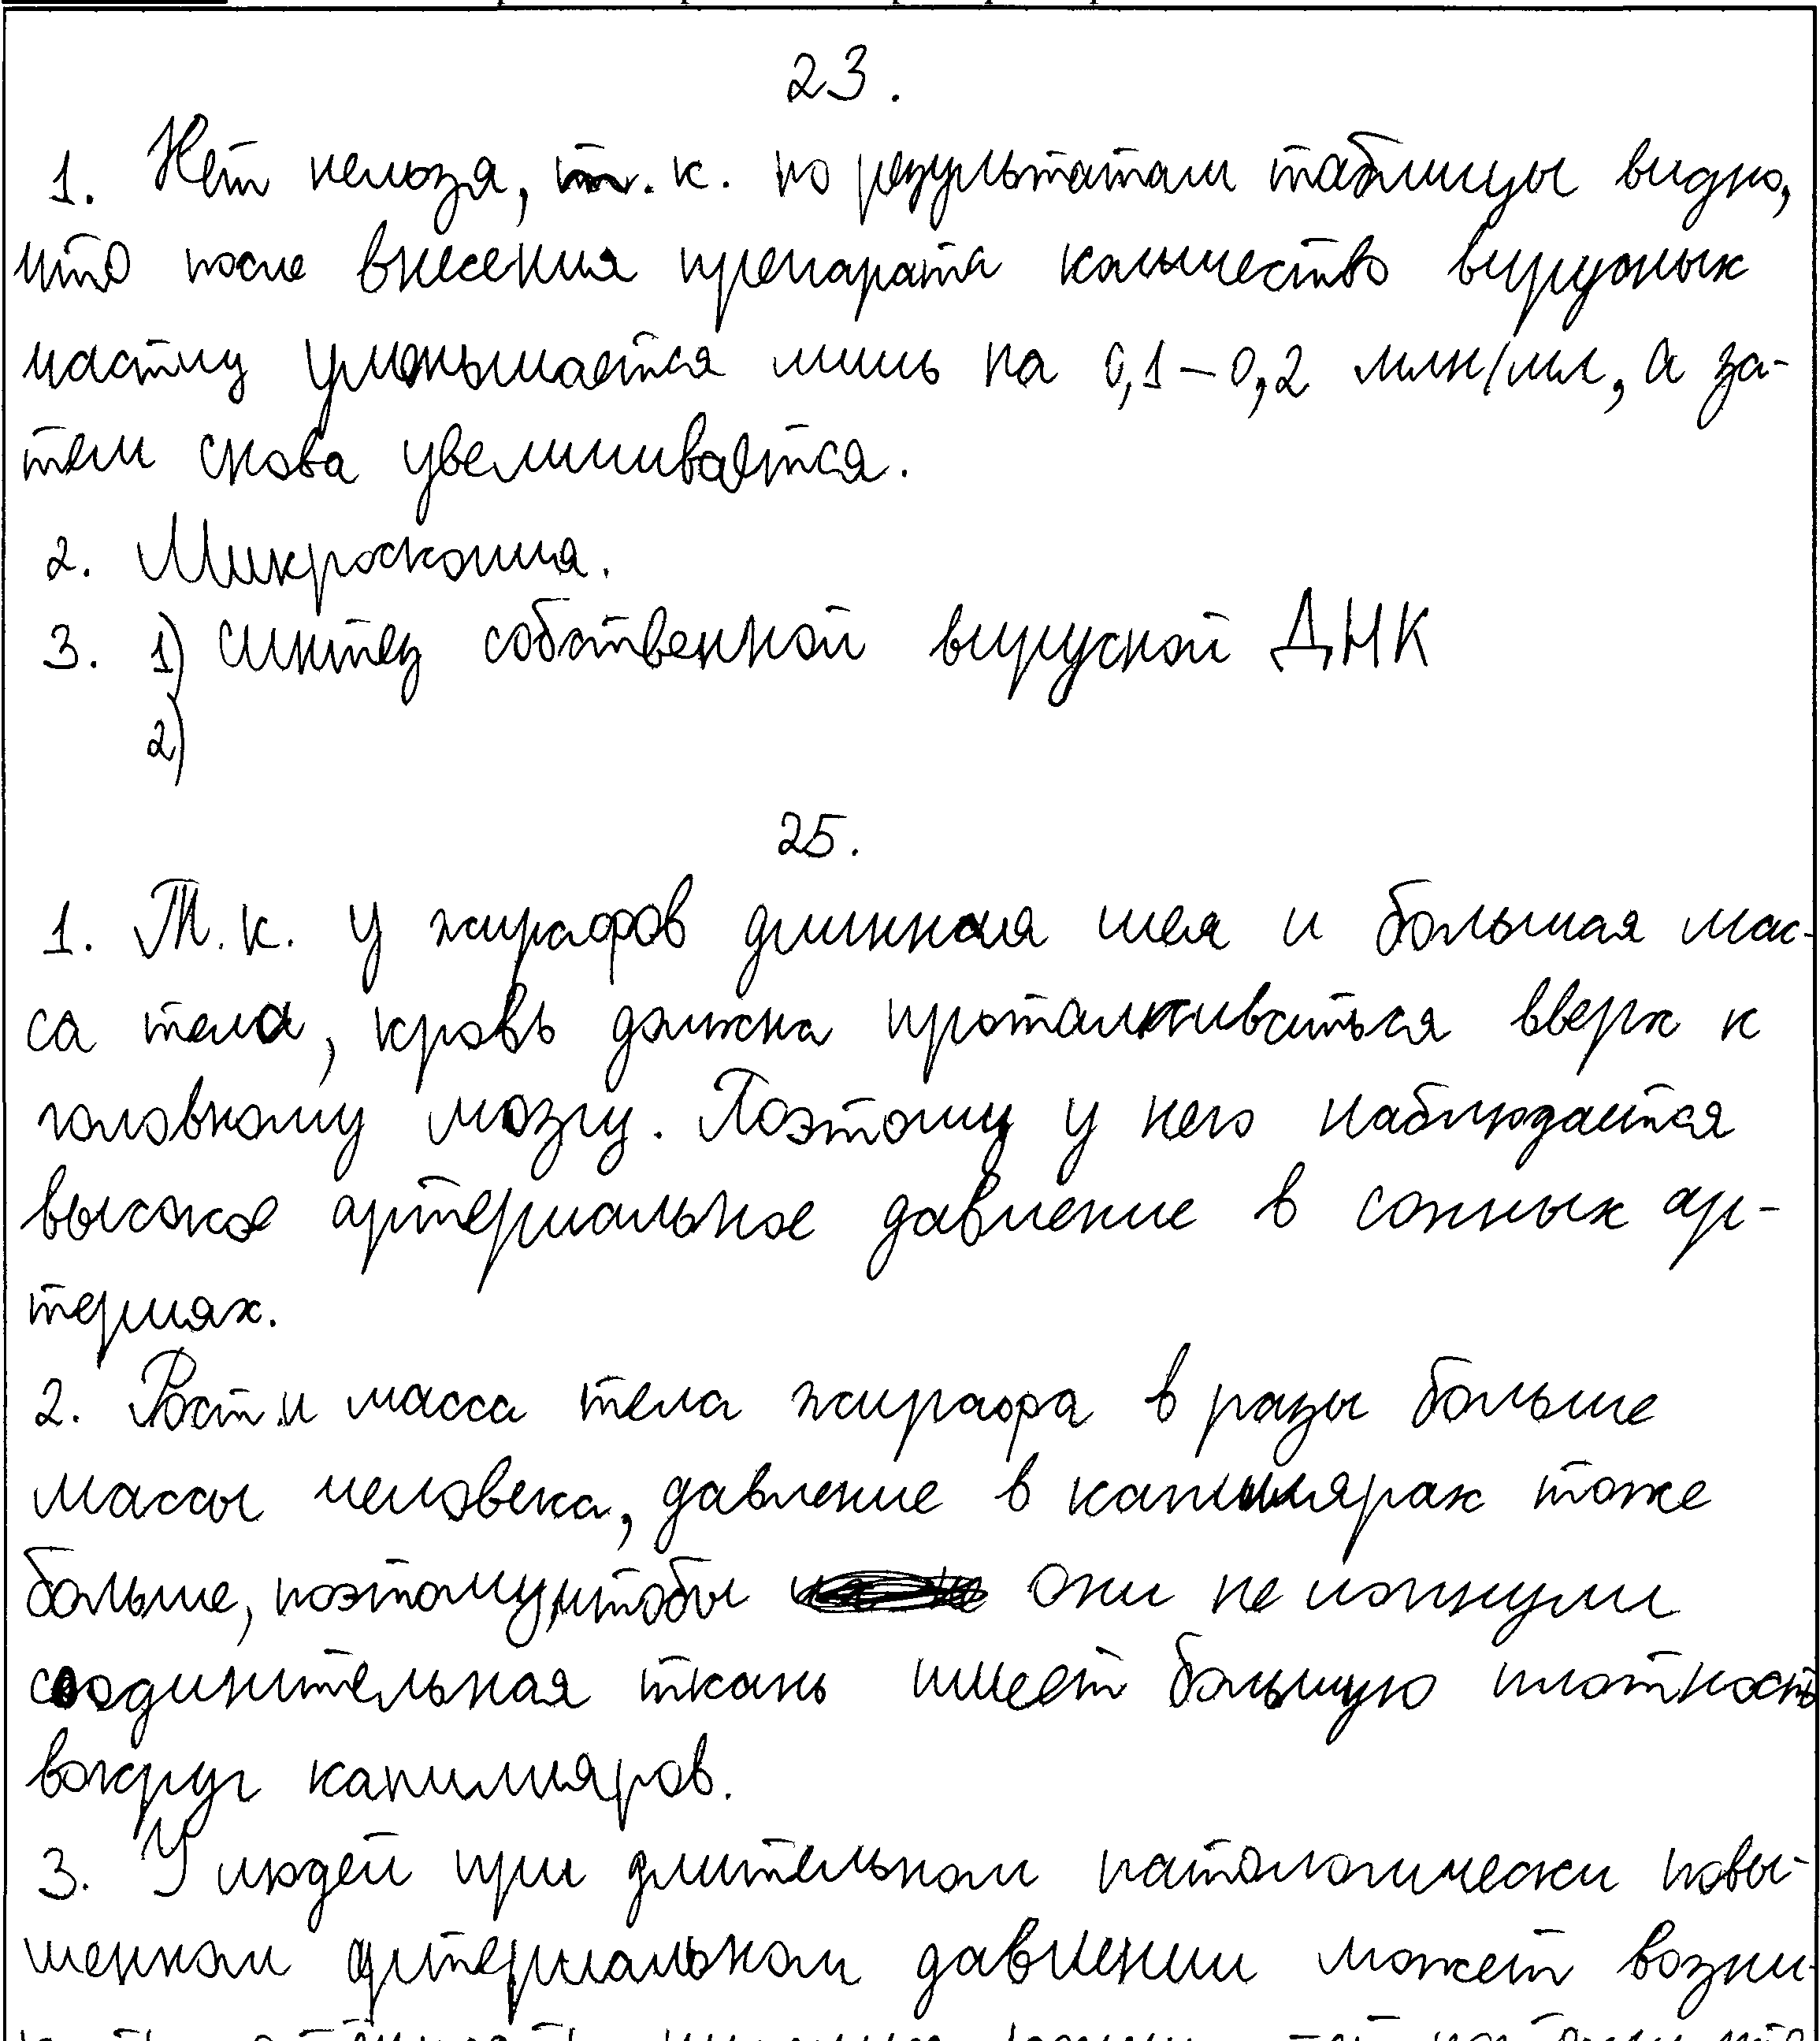 23.
1. Нет нельзя, т.к. по результатам таблицы видно,
что после внесения препарата количество вирусных
частиц уменьшается лишь на 0,1-0,2 млн/мл, а за-
тем снова увеличивается.
2. Микроскопия.
3. 1) синтез собственной вирусной ДНК
2)
25.
1. Т.к. у жирафов длинная шея и большая мас-
са тела, кровь должна проталкиваться вверх к
головному мозгу. Поэтому у него наблюдается
высокое артериальное давление в сонных ар-
териях.
2. Рост и масса тела жирафа в разы больше
массы человека, давление в капиллярах тоже
больше, поэтому, чтобы они не лопнули
соодинительная ткань имеет большую плотность
вокруг капилляров.
3. У людей при длительном патологически повы-
шенном артериальном давлении может возни-